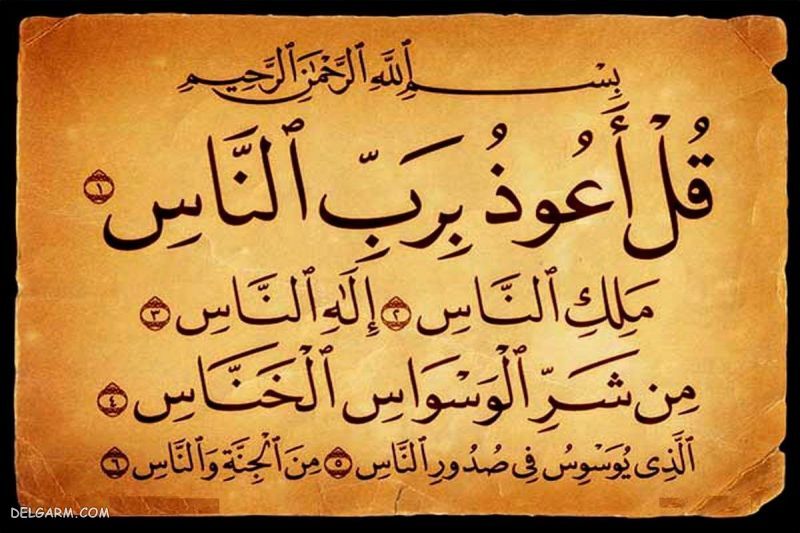 بِسْمِ ٱللَّهِ ٱلرَّحْمَٰنِ ٱلرَّحِيمِ
قُلْ أَعُوذُ بِرَبِّ ٱلنَّاسِ ١
مَلِكِ ٱلنَّاسِ ٢ إِلَٰهِ ٱلنَّاسِ ٣
مِن شَرِّ ٱلْوَسْوَاسِ ٱلْخَنَّاسِ ٤
ٱلَّذِى يُوَسْوِسُ فِى صُدُورِ ٱلنَّاسِ ٥ مِنَ ٱلْجِنَّةِ وَٱلنَّاسِ ٦
DELGARM.COM